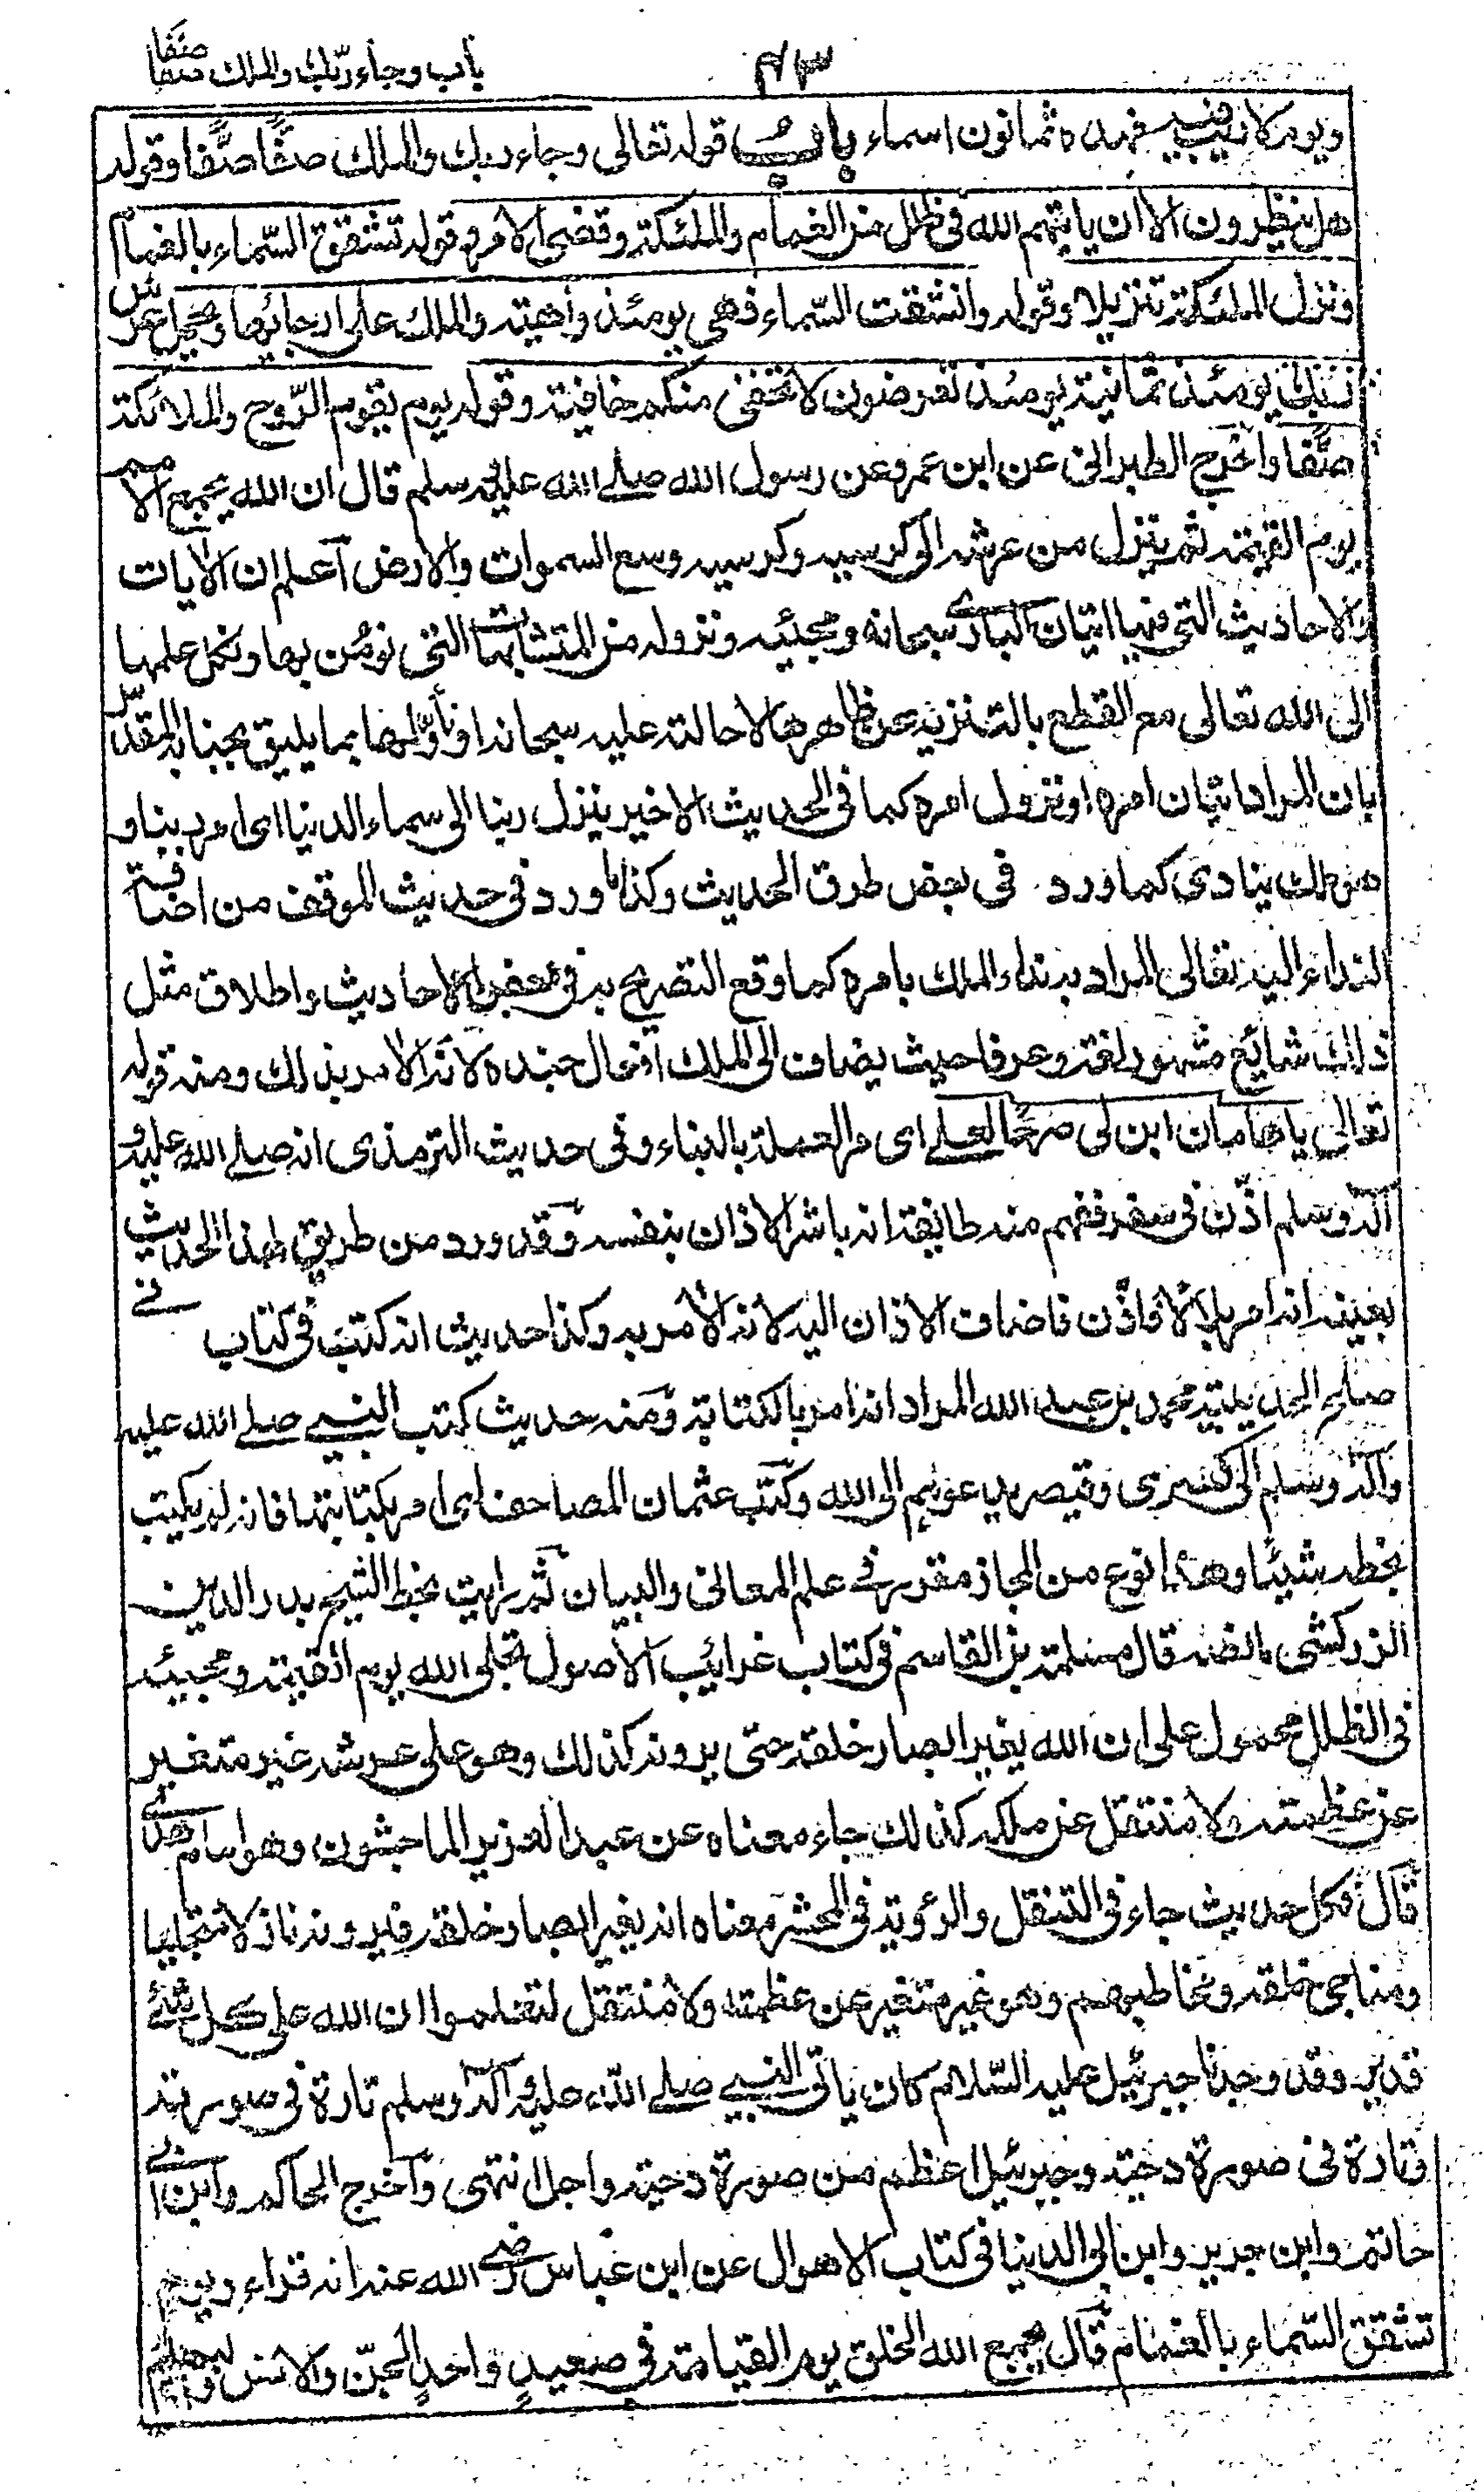 باب وجاء ربك والملك صفا صفا
٤٣
ويوم لا تغيب فهذه ثمانون اسماء باب قوله تعالى وجاء ربك والملك صفًا صفًا وقوله
هل ينظرون الا ان ياتيهم الله فى ظلل من الغمام والملئكة وقضى الامر وقوله تشقق السّماء بالغمام
ونزل الملئكة تنزيلا وقوله وانشقت السّماء فهى يومئذ واهية والملك على ارجائها ويحمل عرش
ربك يومئذ ثمانية يومئذ تعرضون لا تخفى منكم خافية وقوله يوم يقوم الرّوح والملائكة
صفًّا واخرج الطبرانى عن ابن عمرو عن رسول الله صلے الله عليه وسلم قال ان الله يجمع الامم
يوم القيمة ثم ينزل من عرشه الى كرسيه وكرسيه وسع السموات والارض اعلم ان الايات
والاحاديث التى فيها اتيان البارى سبحانه ومجئيه ونزوله من المتشابهات التى نؤمن بها ونكل علمها
الى الله تعالى مع القطع بالتنزيه عن ظاهرها لاحالته عليه سبحانه او نأوّلها بما يليق بجنابه المقدّس
بان المراد اتيان امره او نزول امره كما فى الحديث الاخير ينزل ربنا الى سماء الدنيا اى امر ربنا و
هو ملك ينادى كما ورد فى بعض طرق الحديث وكذا ما ورد فى حديث الموقف من اضافة
النداء اليه تعالى المراد به نداء الملك بامره كما وقع التصريح به فى بعض الاحاديث واطلاق مثل
ذلك شايع مشهور لغة وعرفا حيث يضاف الى الملك افعال جنده لانه الامر بذلك ومنه قوله
تعالى ياهامان ابن لى صرحًا لعلے اى مر العملة بالبناء وفى حديث الترمذى انه صلے الله عليه و
آله وسلم اذّن فى سفر ففهم منه طايفة انه باشر الاذان بنفسه وقد ورد من طريق لهذا الحديث
بعينه انه امر بلالا فاذّن فاضاف الاذان اليه لانه الامر به وكذا حديث انه كتب فى كتاب فے
صلح الحديبية محمد بن عبد الله المراد انه امر بالكتابة ومنه حديث كتب النبے صلے الله عليه
وآله وسلم الى كسرى وقيصر يدعوهم الى الله وكتب عثمان المصاحف اى امر بكتابتها فانه لم يكتب
بخطه شيئًا وهذا نوع من المجاز مقرر فے علم المعانى والبيان ثم رايت بخط الشيخ بدر الدين
الزركشى ما نصه قال مسلمة بن القاسم فى كتاب غرايب الاصول تجلى الله يوم القيمة ومجيئه
فى الظلل محمول على ان الله يغير ابصار خلقه حتى يرونه كذلك وهو على عرشه غير متغير
عن عظمته ولا منتقل عن ملكه كذلك جاء معناه عن عبد العزيز الماجشون وهو امام هدى
قال فكل حديث جاء فى التنقل والرؤية فى المحشر معناه انه يغير ابصار خلقه فيرونه نازلا متجليا
ومناجى خلقه ومخاطبهم وهو غير متغير عن عظمته ولا منتقل لتعلموا ان الله على كل شئ
قدير وقد وجدنا جبرئيل عليه السّلام كان ياتى النبے صلے الله عليه وآله وسلم تارة فى صورته
وتارة فى صورة دحية وجبرئيل اعظم من صورة دحية واجل انتهى واخرج الحاكم وابن ابى
حاتم وابن جرير وابن ابى الدنيا فى كتاب الاهوال عن ابن عباس رضى الله عنه انه قراء ويوم
تشقق السّماء بالغمام قال يجمع الله الخلق يوم القيامة فى صعيدٍ واحدٍ الجنّ والانس